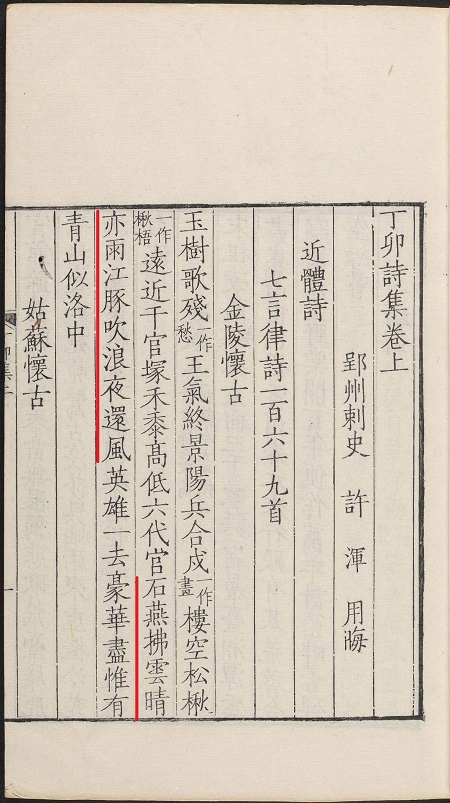 丁卯詩集卷上
郢州刺史 許 渾 用晦
近體詩
七言律詩二百六十九首
金陵懷古
玉樹歌殘一作愁王氣終景陽兵合戍一作畫樓空松楸
一作楸梧遠近千官塚禾黍髙低六代官石燕拂雲晴
亦雨江豚吹浪夜還風英雄一去豪華盡惟有
青山似洛中
姑蘇懷古
一